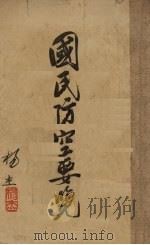 國民防空要覽
楊杰